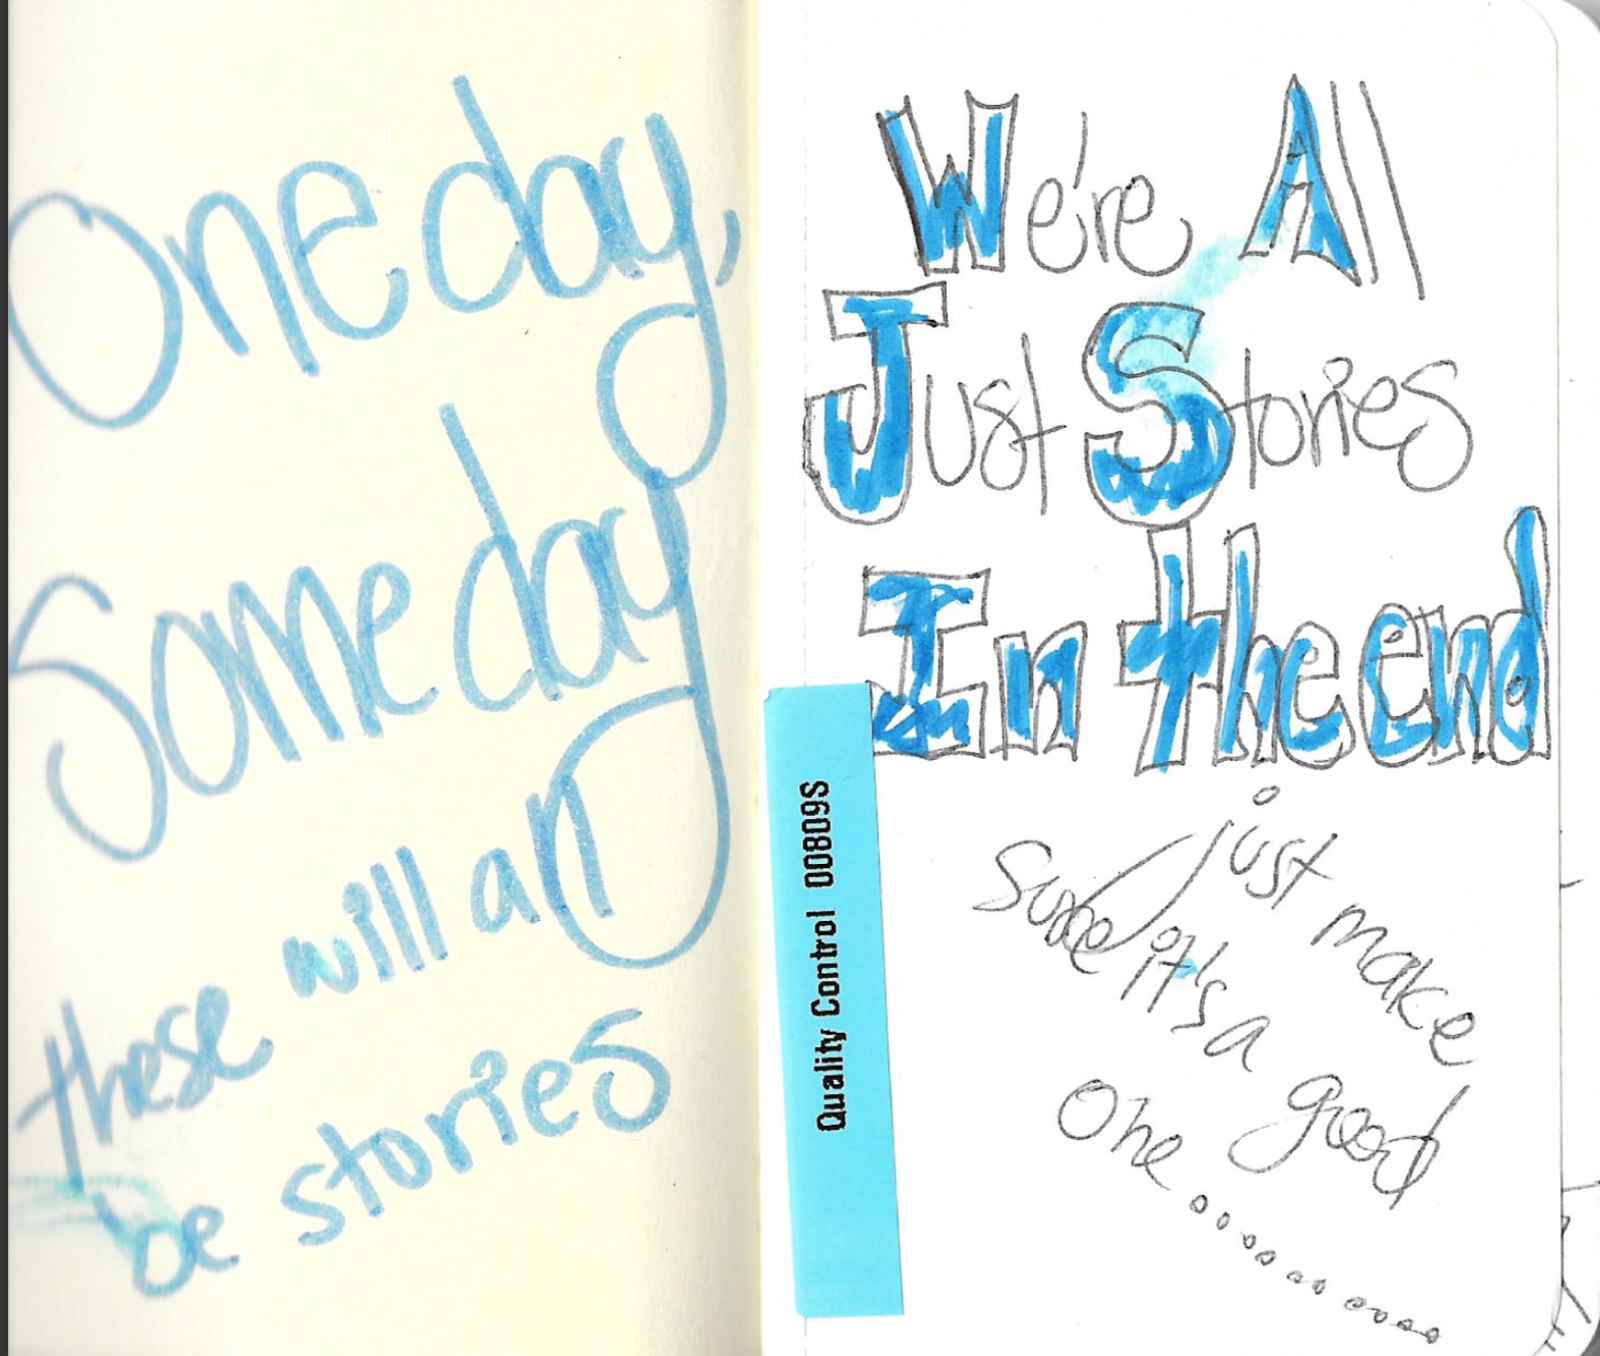 One day,
Someday
these will all
be stories
We're All
Just Stories
In the end
just make
sure it's a
good
one..............
Quality Control 00809S